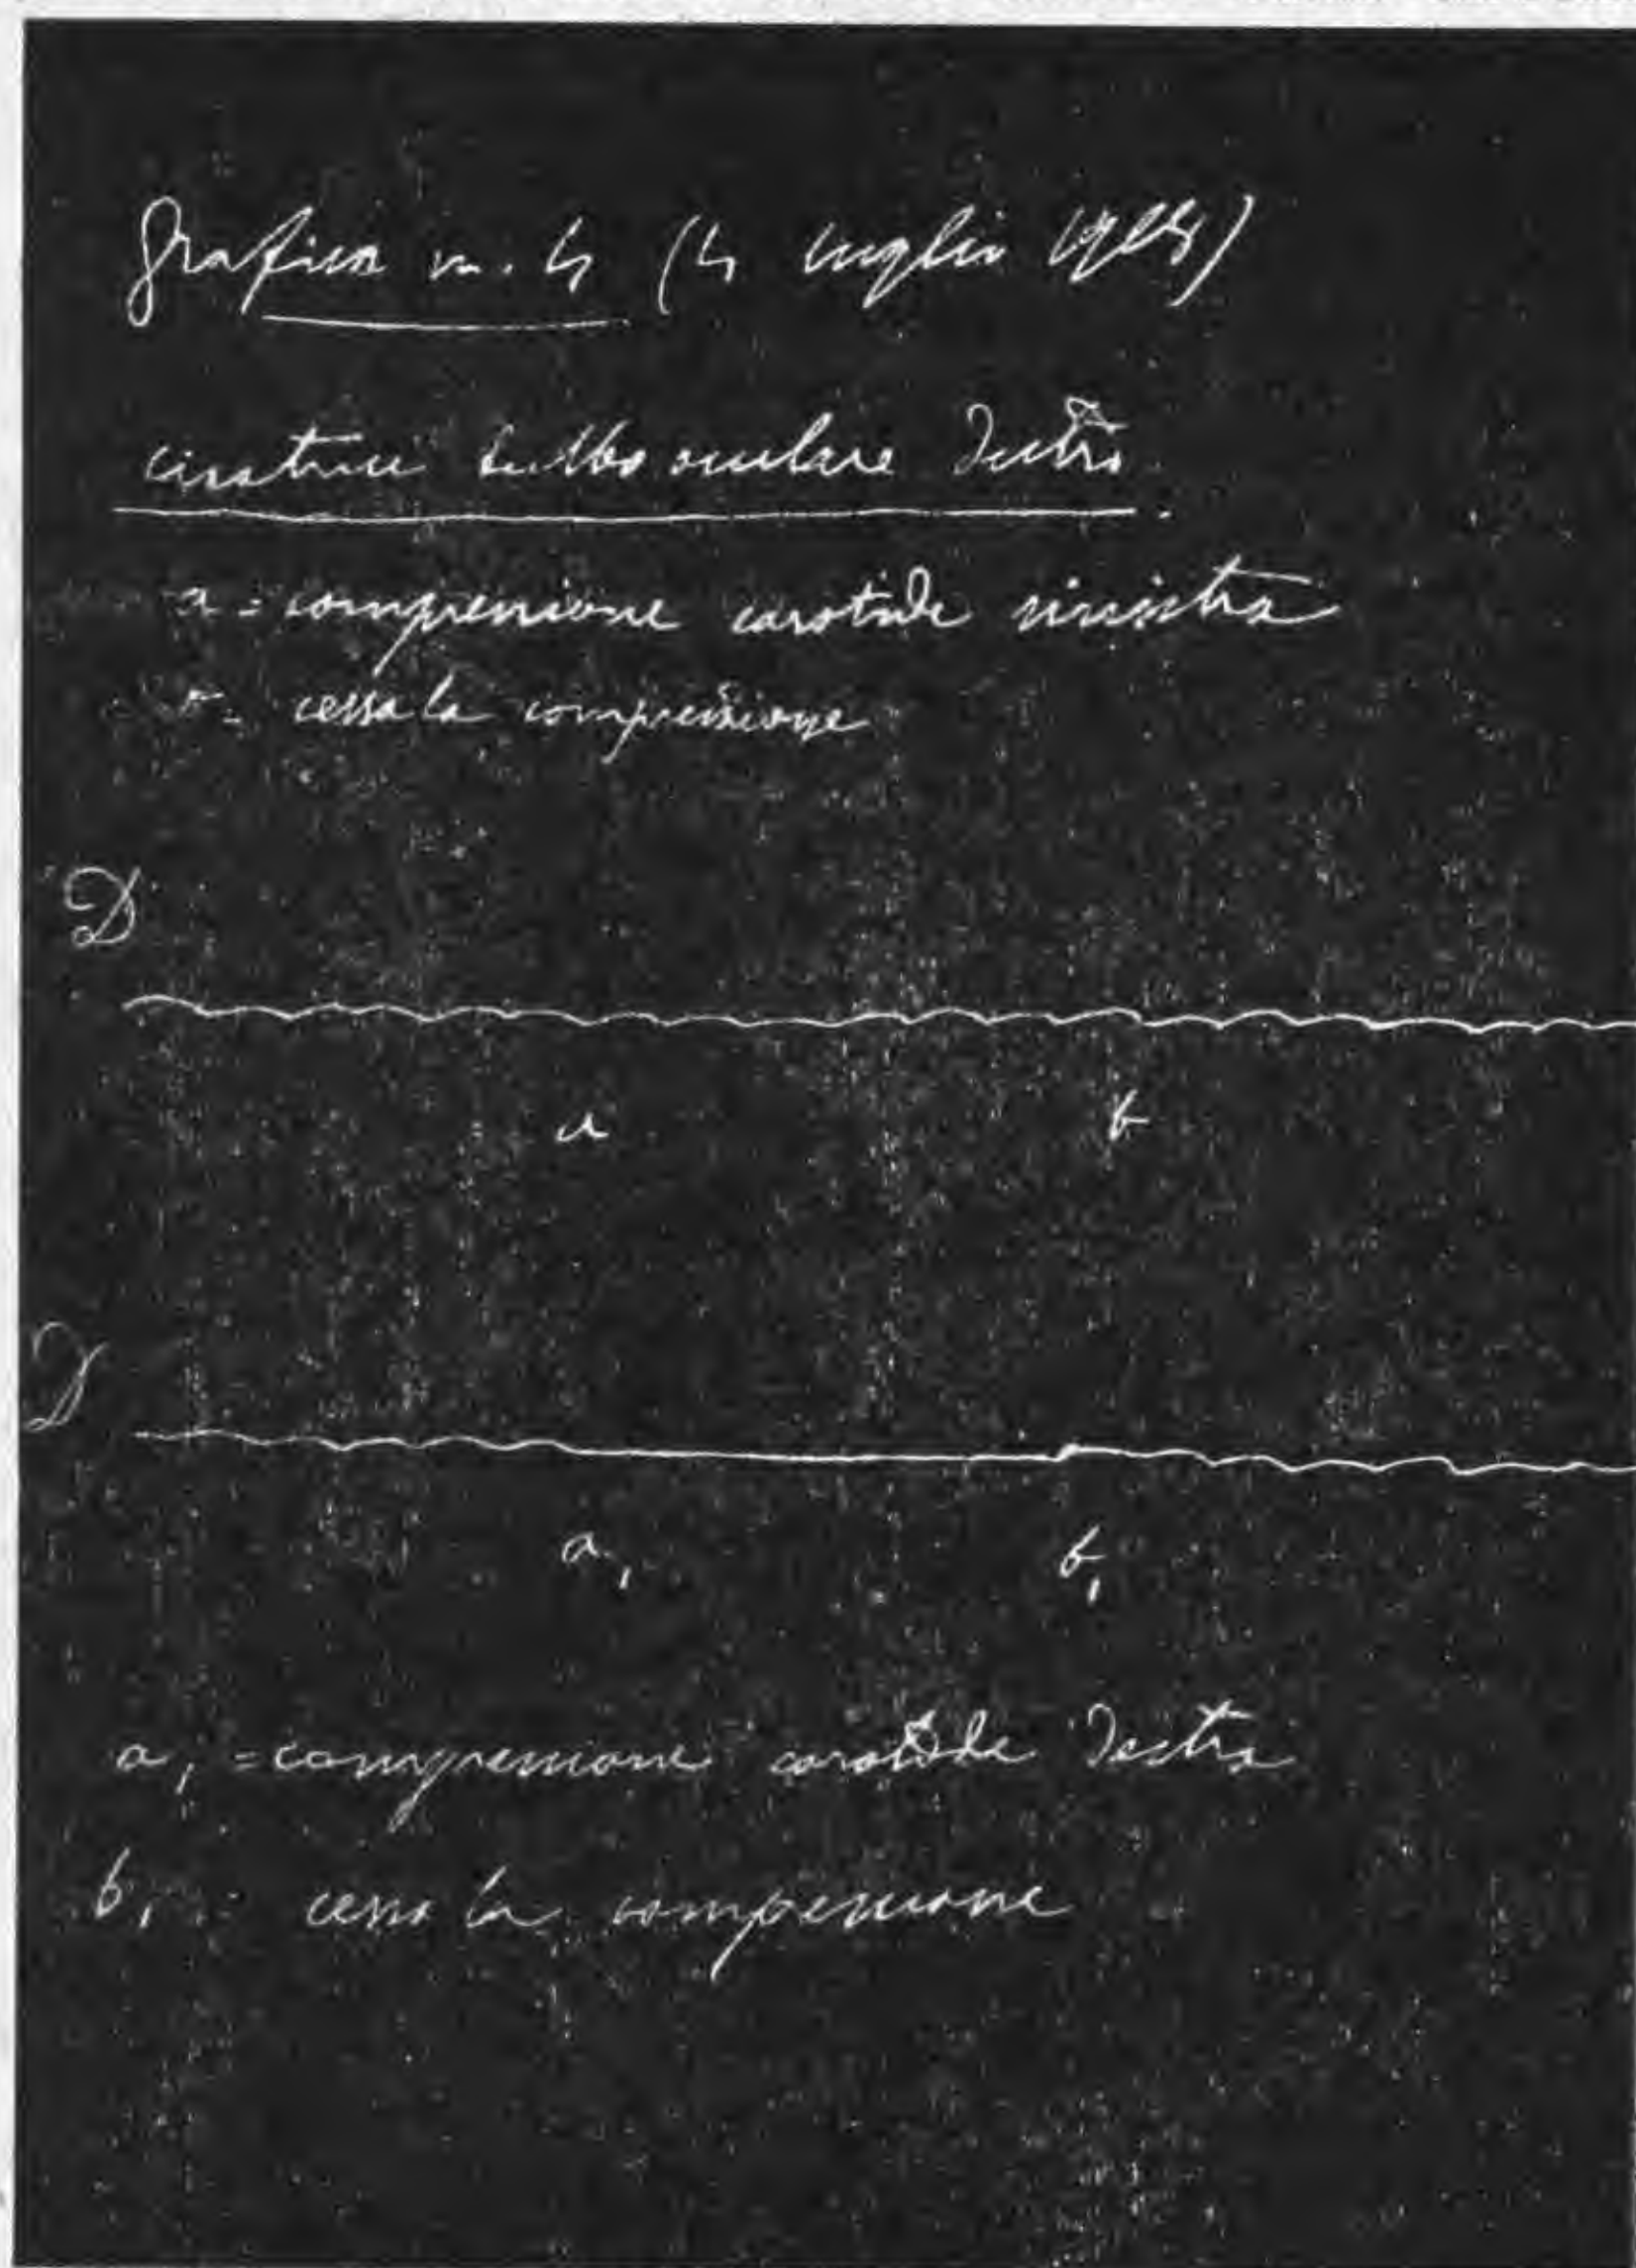 Grafica n. 4 (4 luglio
cicatrice bulbo oculare destro
a = compressione carotide sinistra
b = cessa la compressione
D
a b
D
a, b,
a, = compressione carotide destra
b, = cessa la compressione